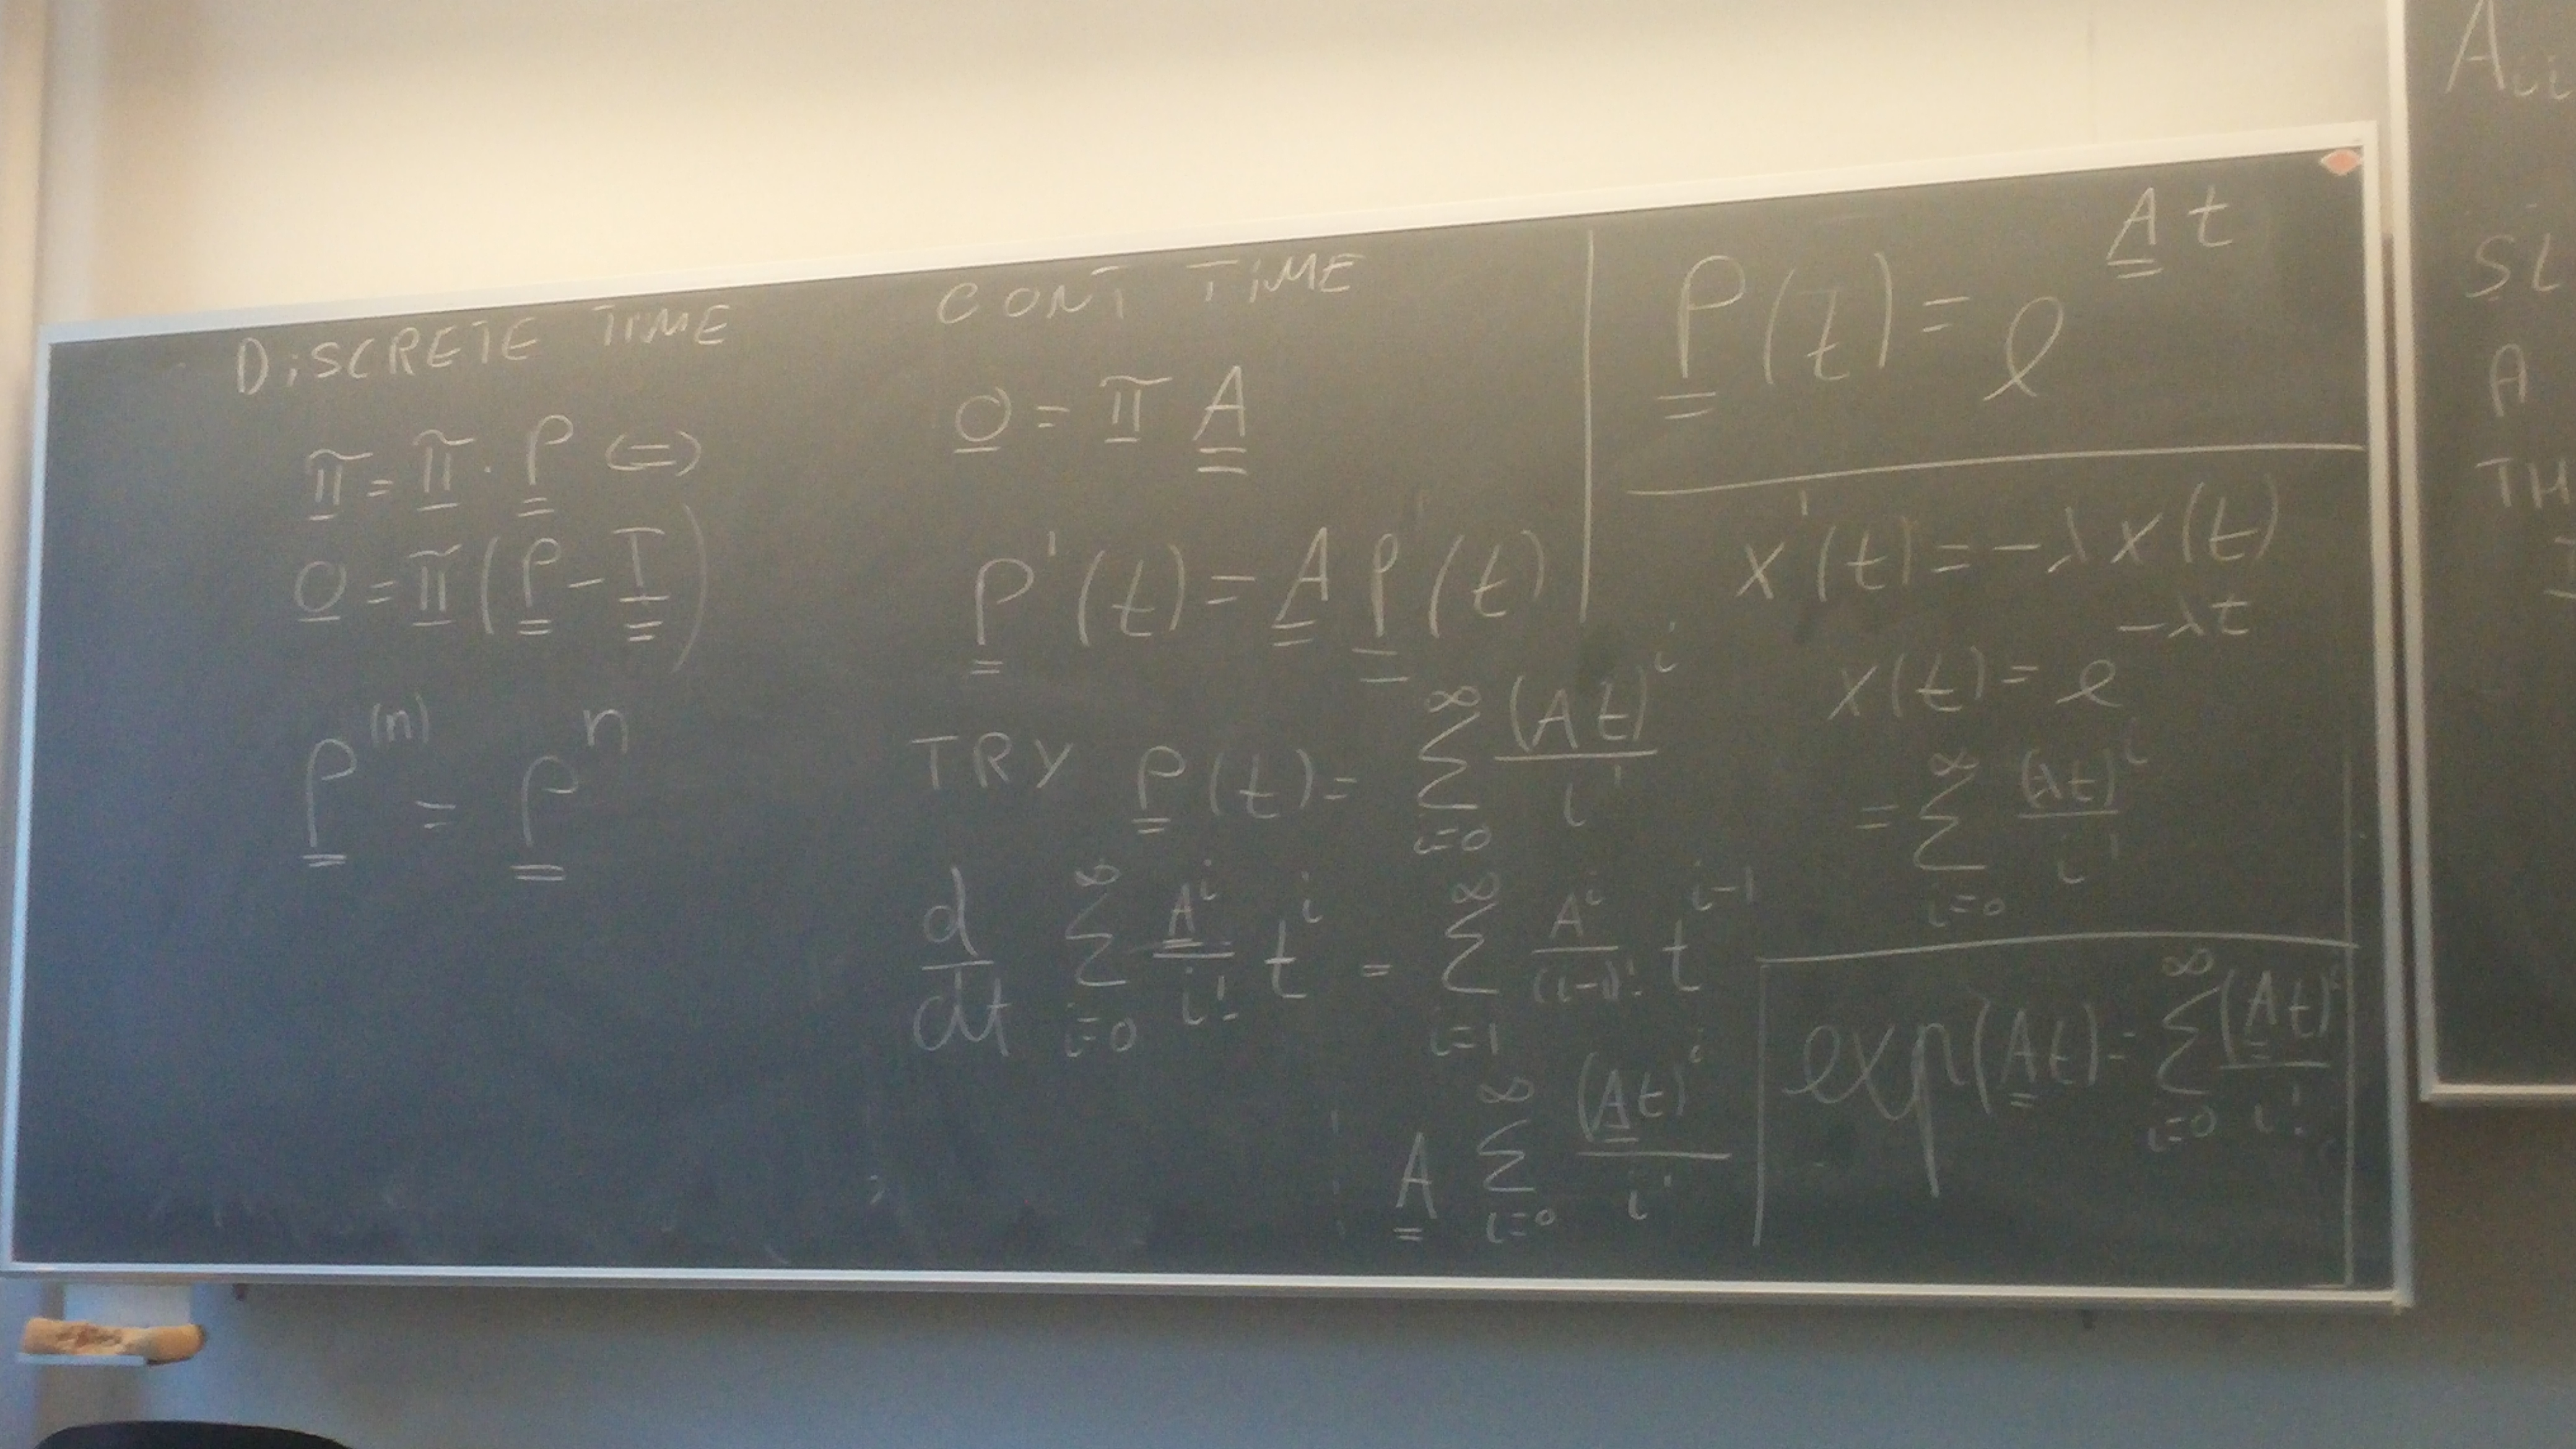 DiSCRETE TIME
π = π · P (=)
0 = π (P - I)
P^(n) = P^n
CONT TiME
0 = π A
P'(t) = A P(t)
TRY P(t) = ∑_{i=0}^∞ (At)^i / i!
d/dt ∑_{i=0}^∞ A^i / i! t^i = ∑_{i=1}^∞ A^i / (i-1)! t^{i-1}
A ∑_{i=0}^∞ (At)^i / i!
P(t) = e^{At}
x'(t) = -λ x(t)
x(t) = e^{-λt}
= ∑_{i=0}^∞ (λt)^i / i!
exp(At) = ∑_{i=0}^∞ (At)^i / i!
A_{ii}
A
TH